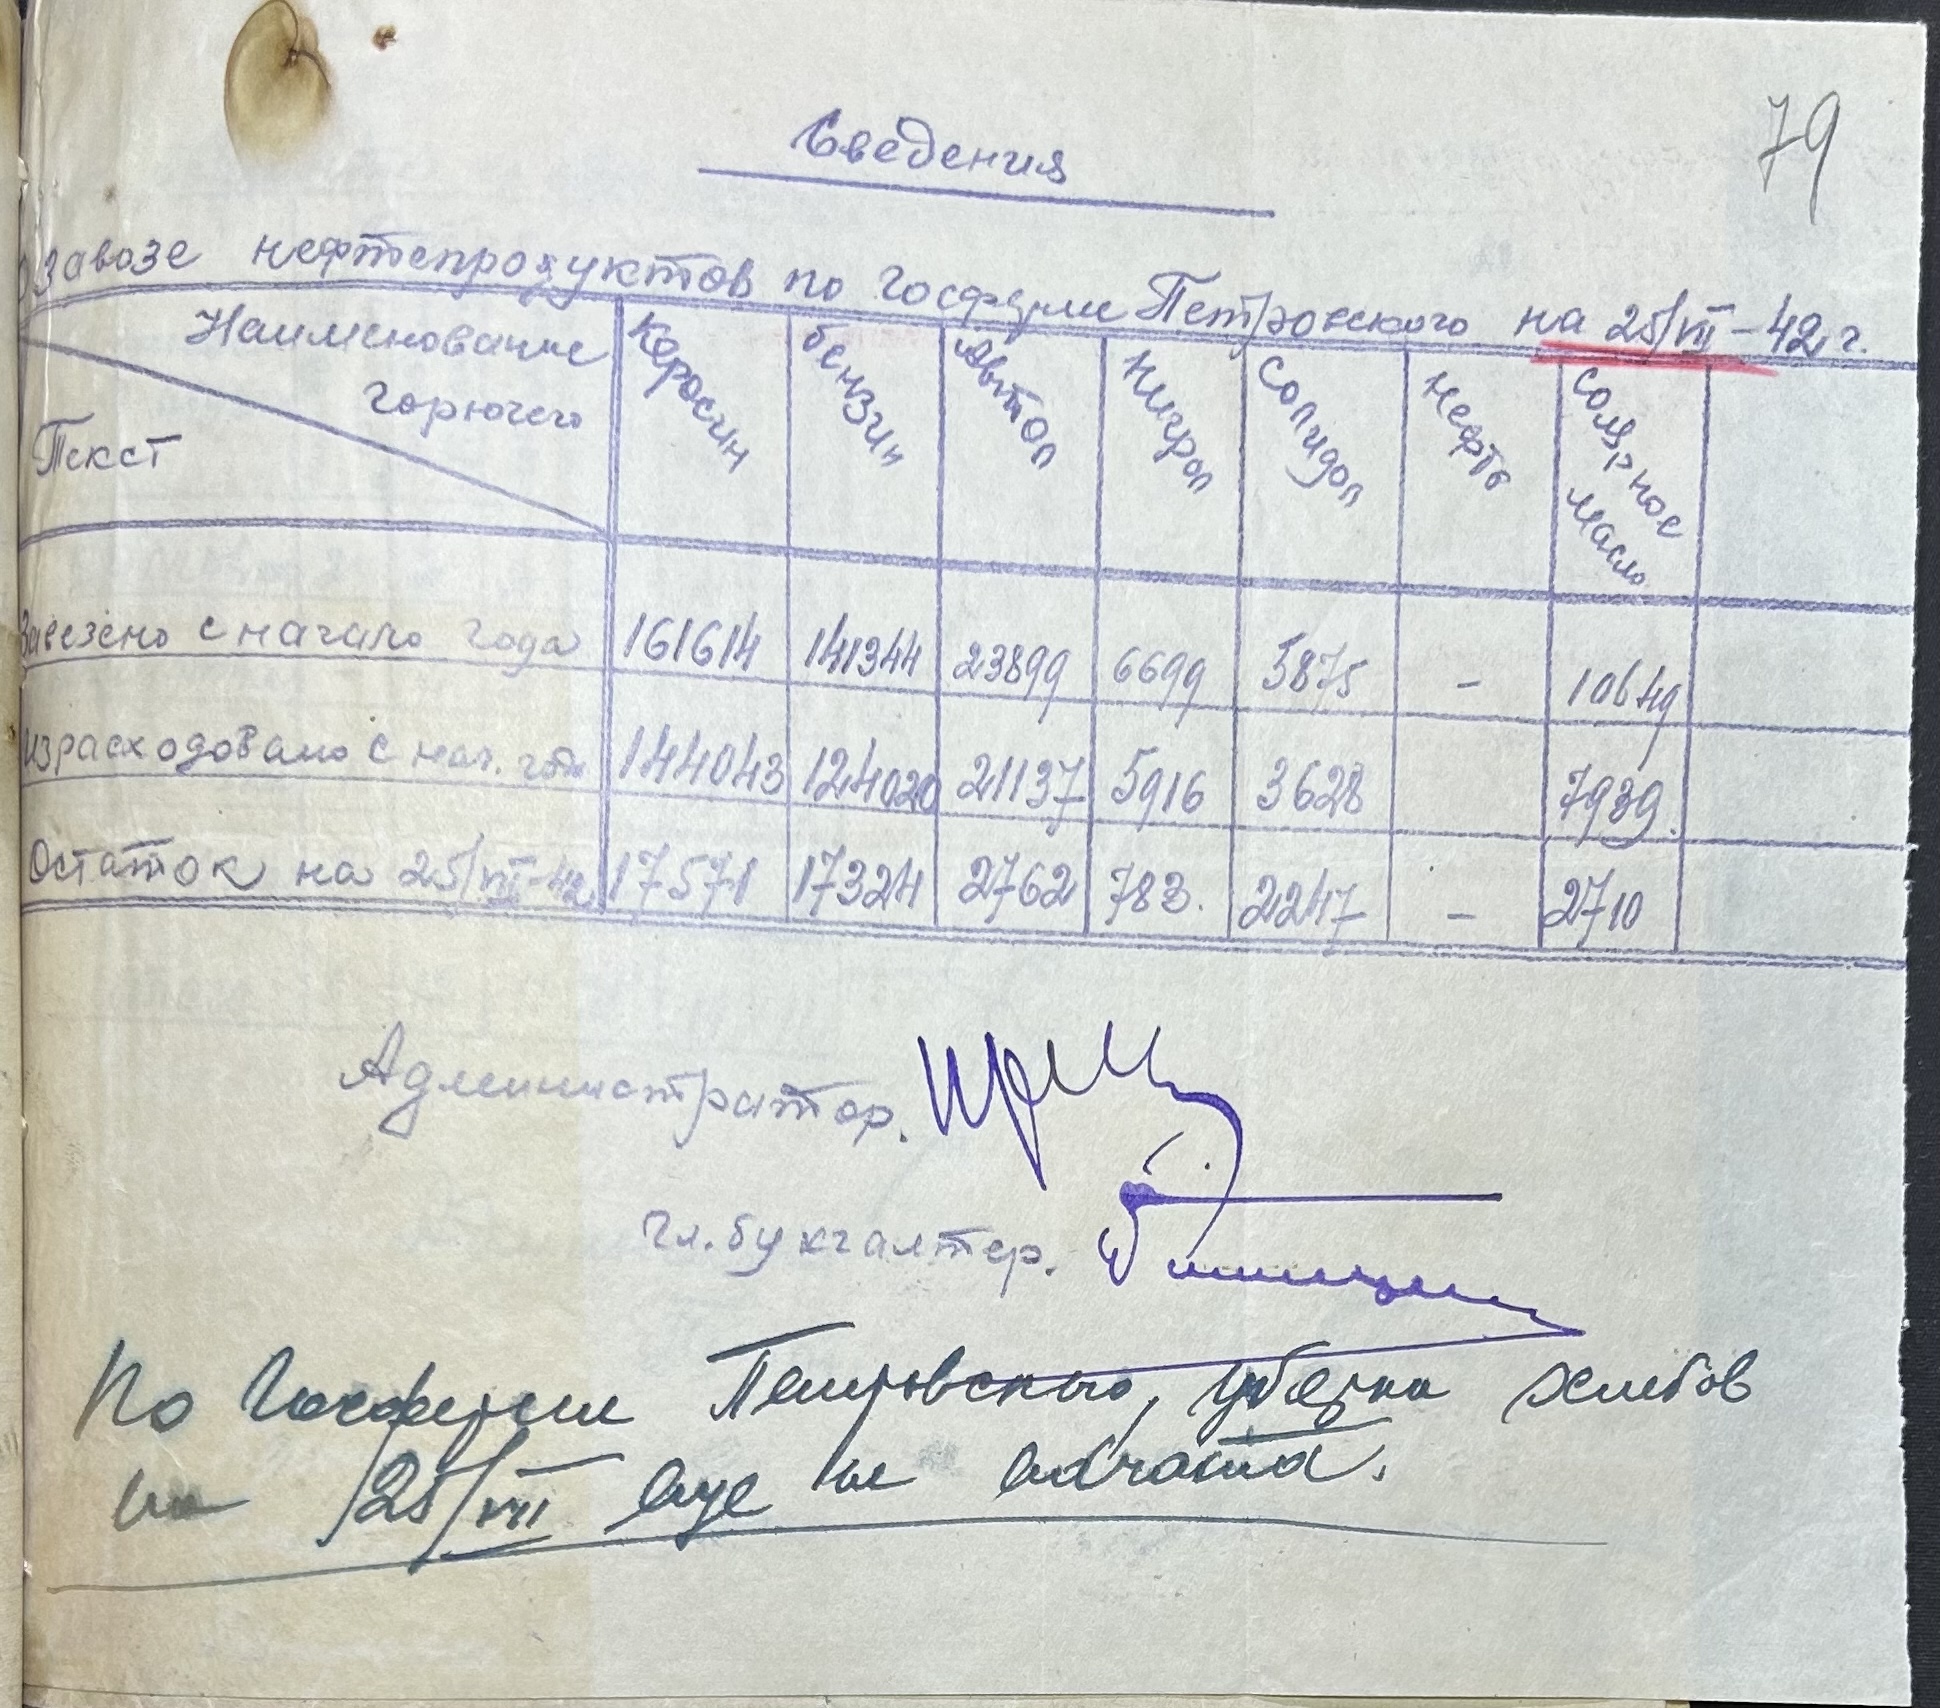 79
Сведения
о завозе нефтепродуктов по госферме Петровского на 25/VII-42 г.
Наименование горючего
Текст
Керосин бензин Автол Нигрол Солидол Нефть Солярное масло
Завезено с начало года 161614 141344 23899 6699 5875 - 10649
Израсходовано с нач. года 144043 124020 21137 5916 3628 7939.
Остаток на 25/VII-42 17571 17324 2762 783. 2247 - 2710
Администратор.
Гл. бухгалтер.
По Госферме Петровского, уборка хлебов
на 25/VII еще не начата.